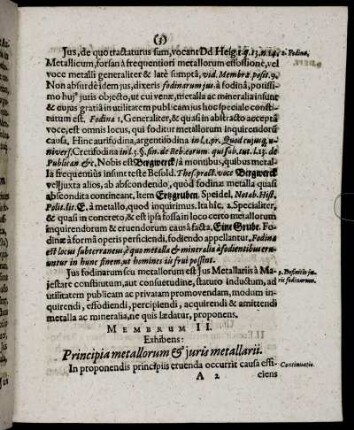 (3)
Jus, de quo tractaturus sum, vocant Dd Heig. 1 q. 13. n. 14. 2. Fodina,
Metallicum, forsan à frequentiori metallorum effossione, vel
voce metalli generaliter & latè sumptâ, vid. Membr. 2 posit. 9.
Non absurdè idem jus, dixeris fodinarum jus, à fodinâ, potis-
simo huj9 juris objecto, ut cui venæ, metalla ac mineralia insunt
& cujus gratiâ in utilitatem publicam jus hoc speciale consti-
tutum est. Fodina 1, Generaliter, & quasi in abstracto acceptâ
voce, est omnis locus, qui foditur metallorum inquirendorũ
causa, Hinc aurifodina, argentifodina in l. 1. pr. Quod cujusq; u-
nivers. Cretifodina in l. 3. §. fin. de Reb. eorum qui sub tut. l. 13. de
Publican &c. Nobis est Bergwerck / à montibus, quibus metal-
la frequentiùs insunt teste Besold. Thes. pract. voce Bergwerck
vel juxta alios, ab abscondendo, quòd fodinæ metalla quasi
abscondita contineant, Item Ertzgruben. Speidel. Notab. Hist.
Polit. lit. E. à metallo, quod inquirimus. Ita hîc. 2. Specialiter,
& quasi in concreto, & est ipsa fossa in loco certo metallorum
inquirendorum & eruendorum causâ facta, Eine Grube. Fo-
dinæ à formâ operis perficiendi, fodiendo appellantur, Fodina
est locus subterraneus è quo metalla & mineralia à fodientibus eru-
untur in hunc finem, ut homines iis frui possint.
Jus fodinarum seu metallorum est Jus Metallariis à Ma- 3. Definitio ju-
jestate constitutum, aut consuetudine, statuto inductum, ad ris fodinarum.
utilitatem publicam ac privatam promovendam, modum in-
quirendi, effodiendi, percipiendi, acquirendi & amittendi
metalla ac mineralia, ne quis lædatur, proponens.
MEMBRUM II.
Exhibens:
Principia metallorum & juris metallarii.
In proponendis principiis eruenda occurrit causa effi- Continuatio.
A 2 ciens